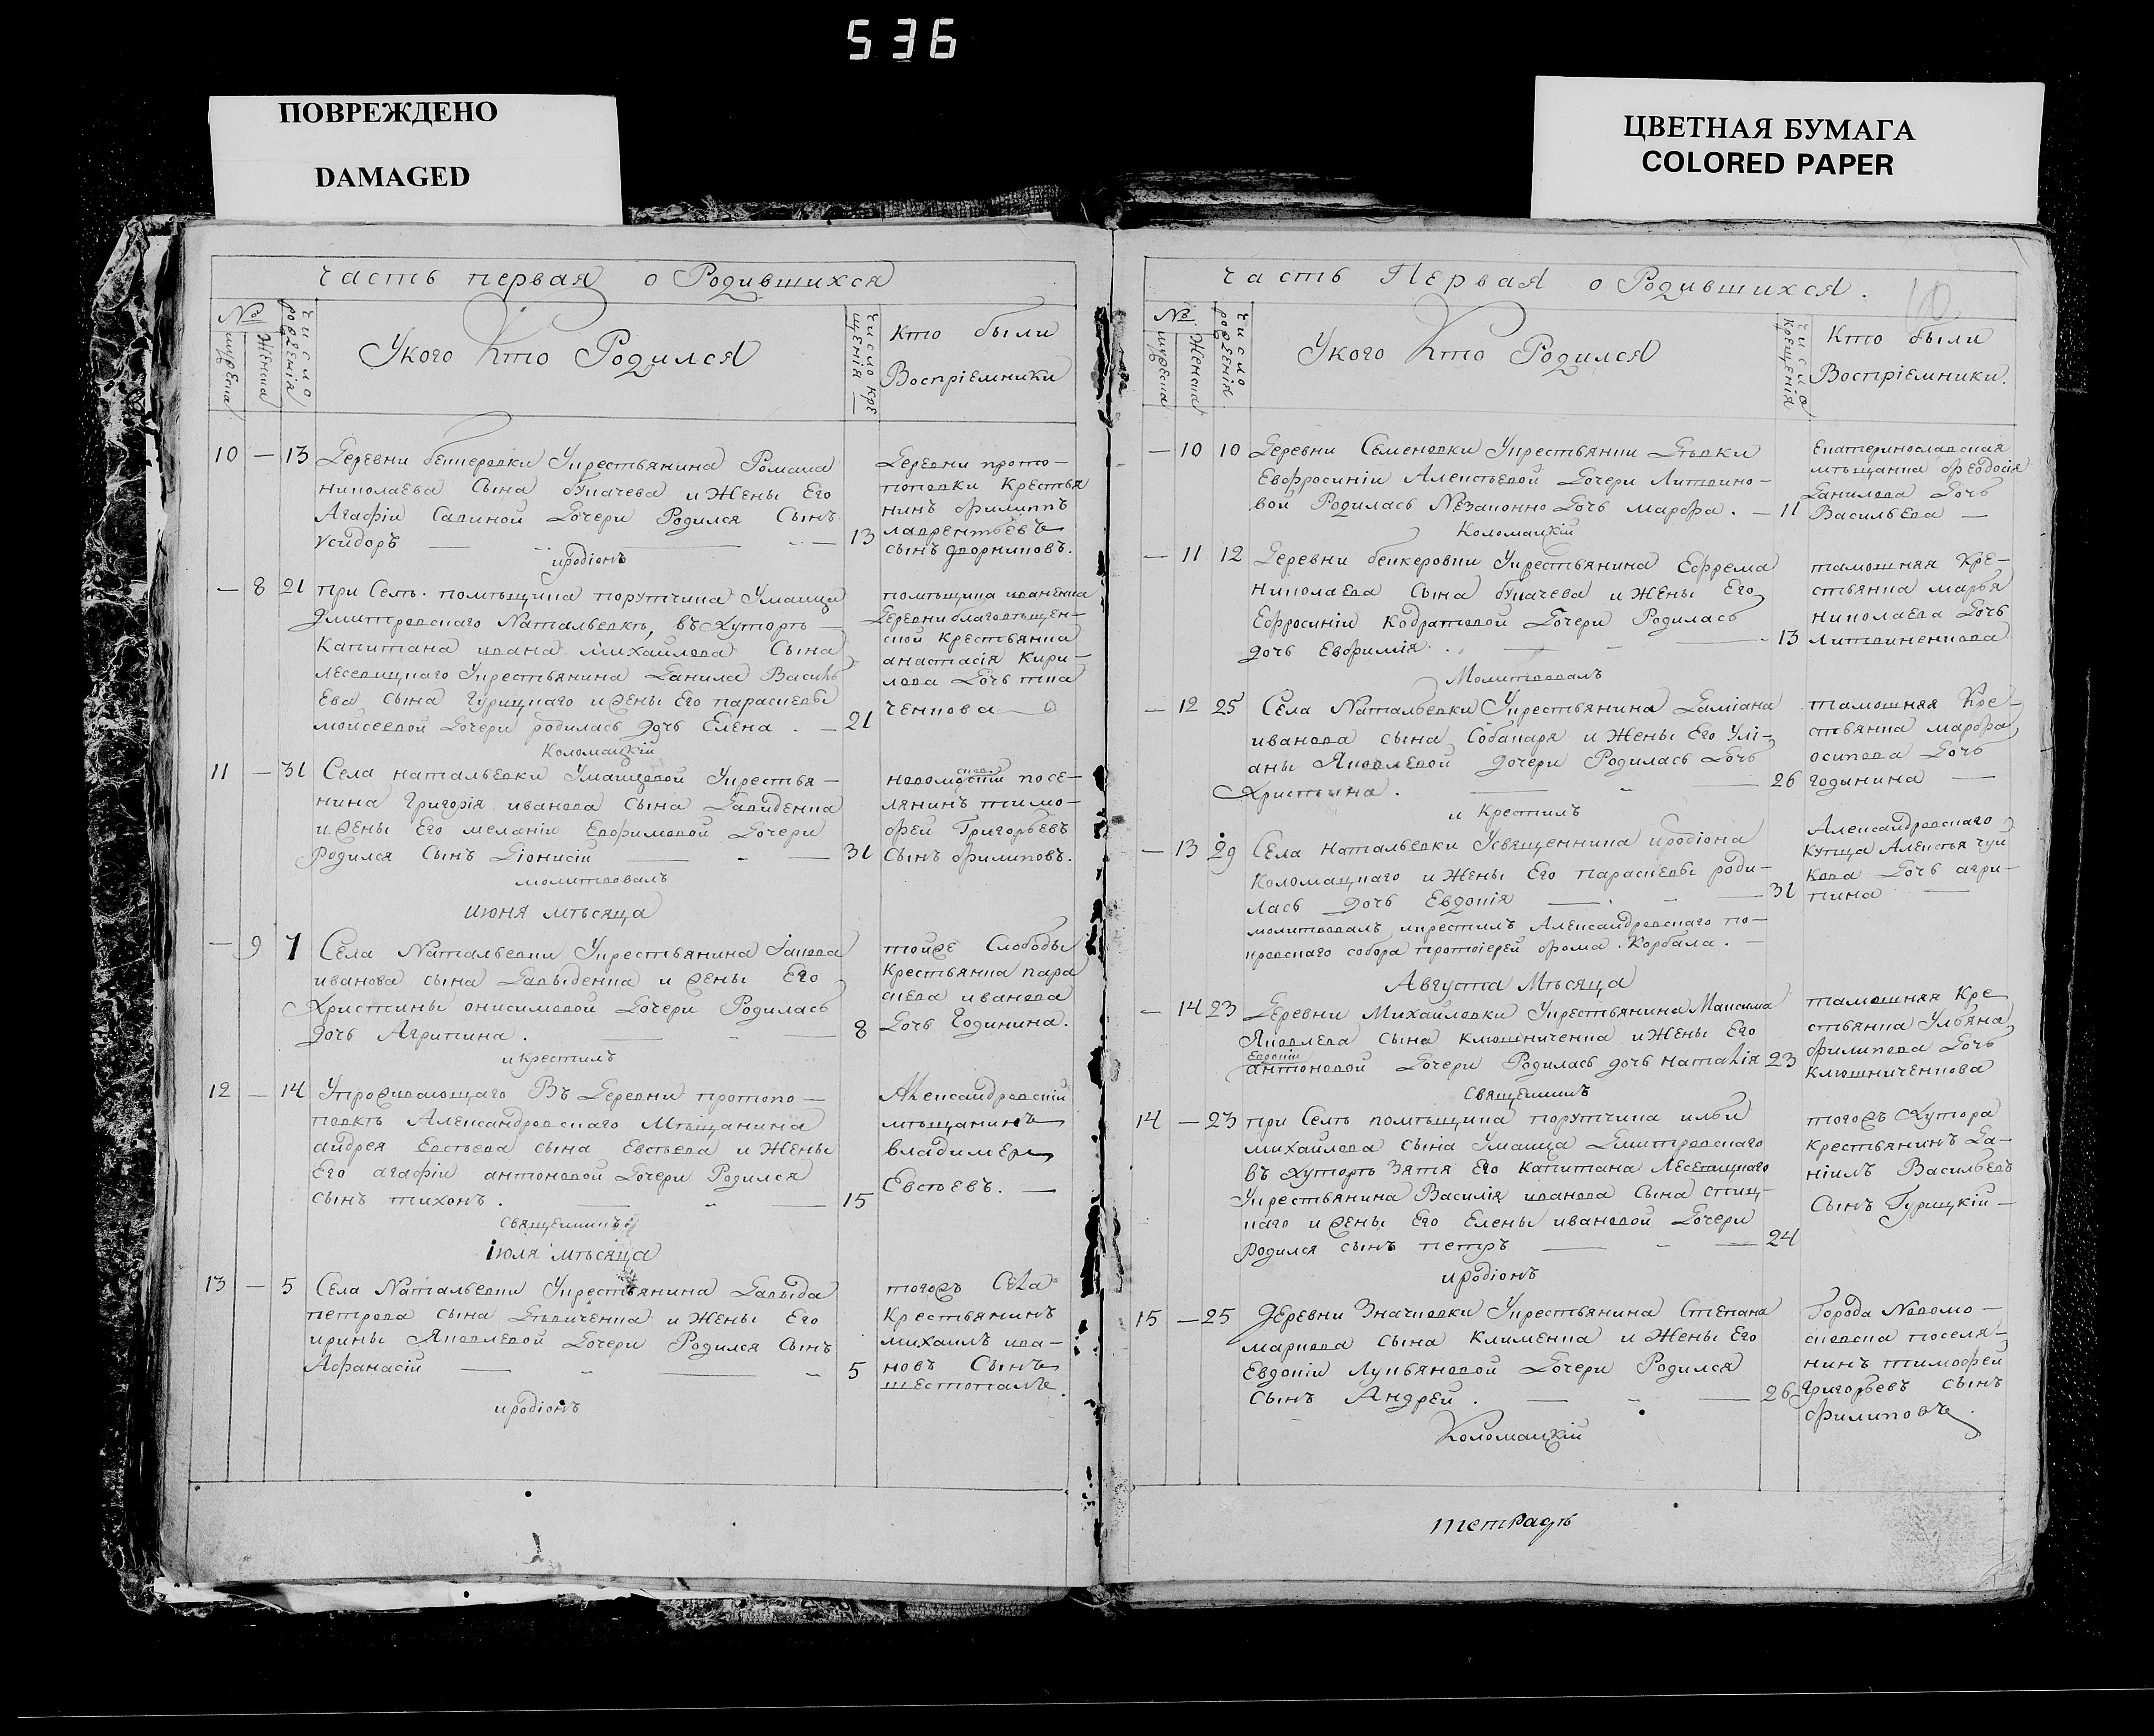 536
ПОВРЕЖДЕНО
DAMAGED
ЦВЕТНАЯ БУМАГА
COLORED PAPER
часть первая о Родившихся
№
мужеска
женска
число рождения
Укого Кто Родился
число крещенія
Кто были
Воспріемники
10 — 13 Деревни бекеровки Укрестьянина Романа
николаева Сына букачева и Жены Его
Агафіи Савиной Дочери Родился Сынъ
усидоръ — 13
иродіонъ
Деревни прото-
поповки Крестья
нинъ филиппъ
лаврентьевъ
сынъ дворниковъ.
— 8 21 при Селѣ помѣщика порутчика Уманца
Дмитровскаго Натальевкѣ, въ Хуторѣ
Капитана ивана михайлова Сына
Лесевицкаго Укрестьянина Данила Василь
Ева сына Гурицкаго и жены Его параскевы
мойсеевой Дочери родилась дочь Елена. — 21
Коломацкій
помѣщика иваненка
Деревни благовѣщен-
ской Крестьянка
анастасія Кири-
лова Дочь тка
ченкова
11 — 31 Села натальевки Уманцовой Укрестья-
нина Григорія иванова Сына Давиденка
и жены Его меланіи Евфимовой Дочери
Родился Сынъ Діонисій — 31
молитвовалъ
новомосковскій посе-
лянинъ тимо-
фей Григорьевъ
Сынъ филиповъ.
июня мѣсяца
— 9 7 Села Натальевки Укрестьянина Іакова
иванова сына Давыденка и жены Его
Христины онисимовой Дочери Родилась
дочь Агрипина. — 8
и крестилъ
тойже Слободы
Крестьянка пара
скева иванова
Дочь Годинина.
12 — 14 Упроживающаго Въ Деревни протопо-
повкѣ Александровскаго Мѣщанина
андрея Евстьева сына Евстьева и Жены
Его агафіи антоновой Дочери Родился
сынъ тихонъ. — 15
священникъ
Александровскій
мѣщанинъ
владимеръ
Евстьевъ. —
іюля мѣсяца
13 — 5 Села Натальевки Укрестьянина Давыда
петрова сына и Жены Его
ирины Яковлевой Дочери Родился Сынъ
Афанасій — 5
иродіонъ
тогожъ Села
Крестьянинъ
михаилъ ива-
новъ Сынъ
шестопалъ.
часть Первая о Родившихся.
10
№
мужеска
Женска
число рожденія
Укого Кто Родился
число крещенія
Кто были
Воспріемники.
— 10 10 Деревни Семеновки Укрестьянки Дѣвки
Евфросиніи Алексѣевой Дочери Литвино-
вой Родилась Незаконно Дочь марфа. — 11
Коломацкій
Екатеринославская
мѣщанка феодосія
Данилова Дочь
Васильева —
— 11 12 Деревни бекеровки Укрестьянина Ефрема
николаева Сына букачева и Жены Его
Ефросиніи Кодратовой Дочери Родилась
дочь Евфимія. — 13
Молитвовалъ
тамошняя Кре-
стьянка марья
николаева Дочь
Литвиненкова
— 12 25 Села Натальевки Укрестьянина Даміана
иванова сына Собакаря и Жены Его Улі-
аны Яковлевой дочери Родилась Дочь
Христина. — 26
и Крестилъ
тамошняя Кре-
стьянка марфа
осипова Дочь
годинина —
— 13 29 Села натальевки Усвященника иродіона
Коломацкаго и Жены Его параскевы роди-
лась дочь Евдокія — 31
молитвовалъ икрестилъ Александровскаго по-
кровскаго собора протоіерей фома. Корбала. —
Александровскаго
Купца Алексѣя чуй
кова Дочь агри-
пина —
Августа Мѣсяца
— 14 23 Деревни Михайловки Укрестьянина Максима
Яковлева сына ключниченка и Жены Его
Евдокіи
антоновой Дочери Родилась дочь наталія 23
Священникъ
тамошняя Кре
стьянка Ульяна
филипова Дочь
ключниченкова
14 — 23 при Селѣ помѣщика порутчика ильи
михайлова сына Уманца Дмитровскаго
въ хуторѣ зятя Его Капитана Лесевицкаго
Укрестьянина Василія иванова Сына спиц-
каго и жены Его Елены ивановой Дочери
родился сынъ петръ — 24
иродіонъ
тогожъ Хутора
крестьянинъ Да-
ніилъ Васильевъ
Сынъ Гурицкій —
15 — 25 Деревни Значковки Укрестьянина Степана
маркова сына клименка и Жены Его
Евдокіи Лукьяновой Дочери Родился
Сынъ Андрей. — 26
Коломацкій
Города Новомо-
сковска поселя-
нинъ тимофей
Григорьевъ сынъ
филиповъ.
тетрадь